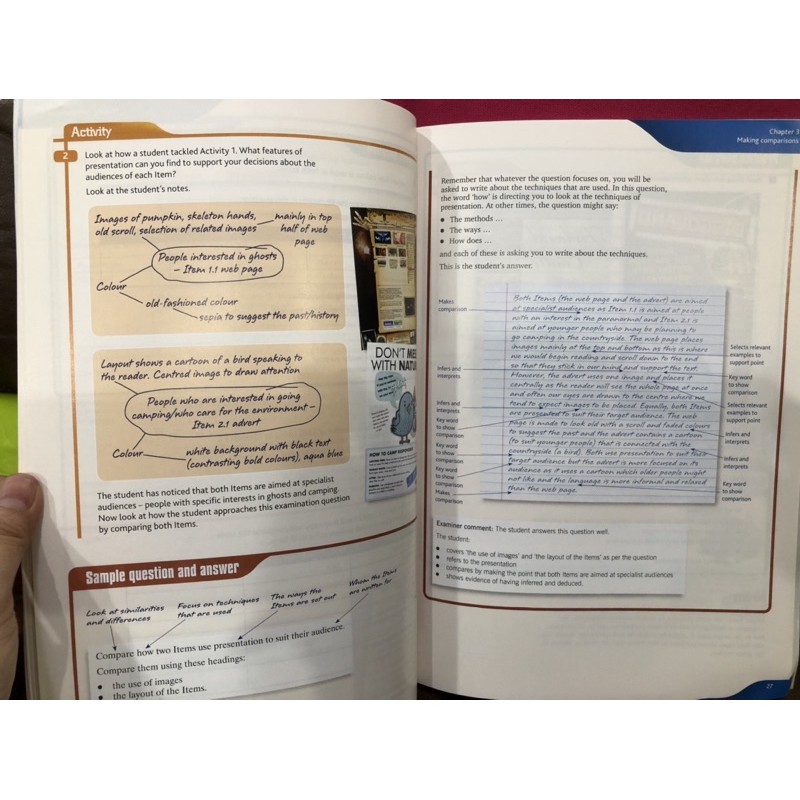 Activity
2
Look at how a student tackled Activity 1. What features of
presentation can you find to support your decisions about the
audiences of each Item?
Look at the student's notes.
Images of pumpkin, skeleton hands,
old scroll, selection of related images
mainly in top
half of web
page
People interested in ghosts
– Item 1.1 web page
Colour
old-fashioned colour
sepia to suggest the past/history
Layout shows a cartoon of a bird speaking to
the reader. Centred image to draw attention
People who are interested in going
camping/who care for the environment –
Item 2.1 advert
Colour
white background with black text
(contrasting bold colours), aqua blue
DON'T MESS
WITH NATURE
HOW TO CAMP
The student has noticed that both Items are aimed at specialist
audiences – people with specific interests in ghosts and camping.
Now look at how the student approaches this examination question
by comparing both Items.
Sample question and answer
Look at similarities
and differences
Focus on techniques
that are used
The ways the
Items are set out
Whom the Items
are written for
Compare how two Items use presentation to suit their audience.
Compare them using these headings:
• the use of images
• the layout of the Items.
Chapter 3
Making comparisons
Remember that whatever the question focuses on, you will be
asked to write about the techniques that are used. In this question,
the word 'how' is directing you to look at the techniques of
presentation. At other times, the question might say:
• The methods ...
• The ways ...
• How does ...
and each of these is asking you to write about the techniques.
This is the student's answer.
Makes
comparison
Infers and
interprets
Infers and
interprets
Key word
to show
comparison
Key word
to show
comparison
Key word
to show
comparison
Makes
comparison
Both Items (the web page and the advert) are aimed
at specialist audiences as Item 1.1 is aimed at people
with an interest in the paranormal and Item 2.1 is
aimed at younger people who may be planning to
go camping in the countryside. The web page places
images mainly at the top and bottom as this is where
we would begin reading and scroll down to the end
so that they stick in our mind and support the text.
However, the advert uses one image and places it
centrally as the reader will see the whole page at once
and often our eyes are drawn to the centre where we
tend to expect images to be placed. Equally, both Items
are presented to suit their target audience. The web
page is made to look old with a scroll and faded colours
to suggest the past and the advert contains a cartoon
(to suit younger people) that is connected with the
countryside (a bird). Both use presentation to suit their
target audience but the advert is more focused on its
audience as it uses a cartoon which older people might
not like and the language is more informal and relaxed
than the web page.
Selects relevant
examples to
support point
Key word
to show
comparison
Selects relevant
examples to
support point
Infers and
interprets
Infers and
interprets
Key word
to show
comparison
Examiner comment: The student answers this question well.
The student:
• covers 'the use of images' and 'the layout of the Items' as per the question
• refers to the presentation
• compares by making the point that both Items are aimed at specialist audiences
• shows evidence of having inferred and deduced.
27